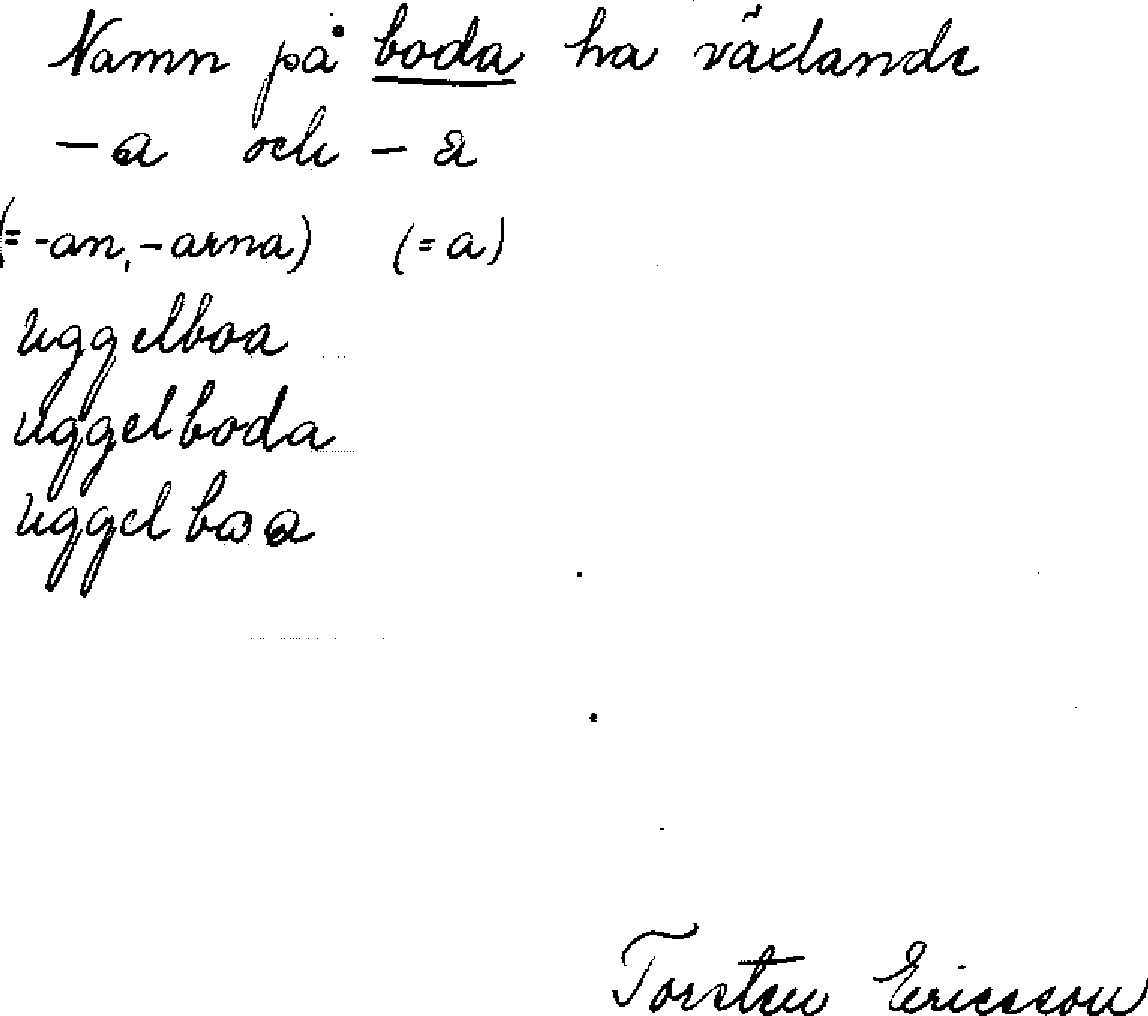 Namn på boda ha växlande
-a och -a
(= -an, -arna) (= a)
uggelboa
uggelboda
uggelboa
Torsten Ericsson